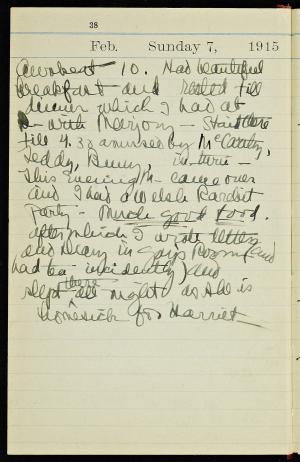 38
Feb. Sunday 7, 1915
Awoke at 10. Had beautiful
breakfast and rested till
dinner which I had at
with Marjory - Staid there
till 4.30 amused by McCarthy,
Teddy, Benny, in turn -
This evening M- came over
and I had a Welsh Rarebit
Party - Much good food.
after which I wrote letters
and diary in Gay's Room (and
had tea incidently) and
slept there all night as she is
homesick for Harriet